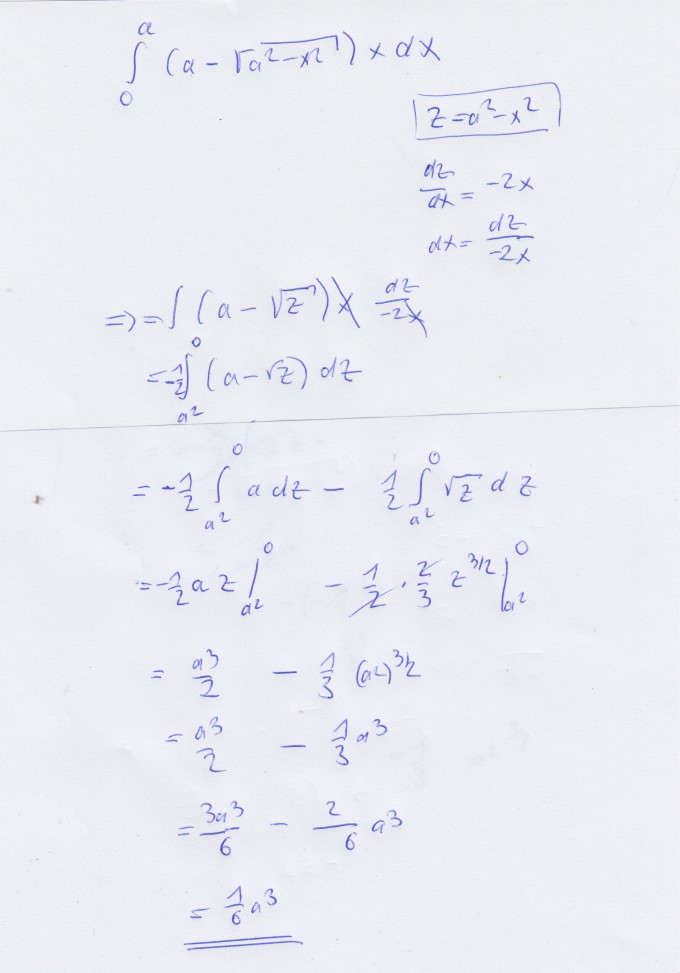 ∫₀ᵃ (a - √(a²-x²)) x dx
z = a²-x²
dz/dx = -2x
dx = dz/-2x
=> = ∫ (a - √z) x dz/-2x
= -1/2 ∫_{a²}^0 (a-√z) dz
= -1/2 ∫_{a²}^0 a dz - 1/2 ∫_{a²}^0 √z dz
= -1/2 a z |_{a²}^0 - 1/2 · 2/3 z^{3/2} |_{a²}^0
= a³/2 - 1/3 (a²)^{3/2}
= a³/2 - 1/3 a³
= 3a³/6 - 2/6 a³
= 1/6 a³